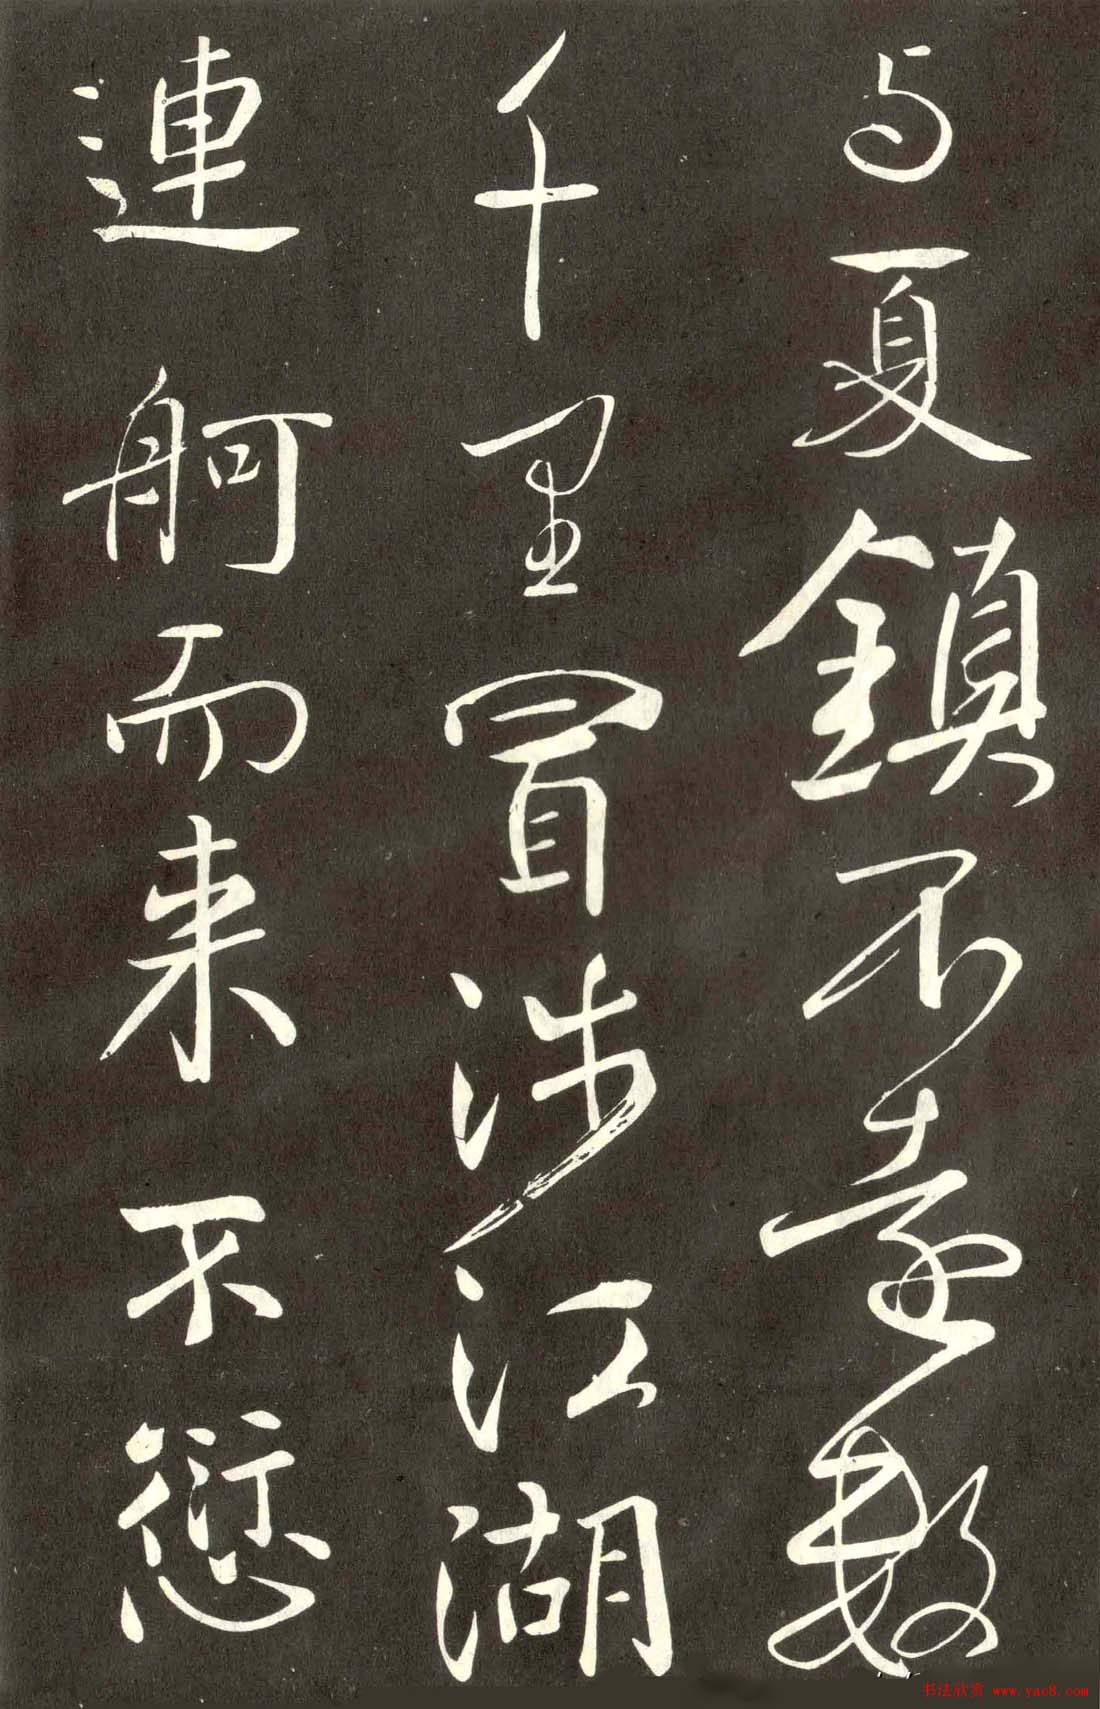 与夏鎮不遠數
千里冒涉江湖
連舸而来不愆
书法欣赏 www.yac8.com